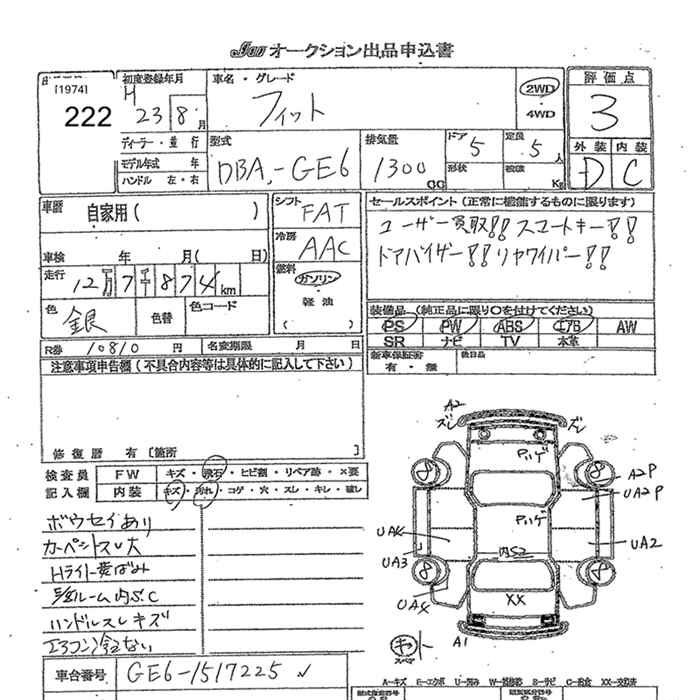 JU オークション出品申込書
[1974]
222
初度登録年月
H 23 8月
車名・グレード
フィット
2WD
4WD
評価点
3
外装 内装
D C
ディーラー・並行
モデル年式 年
ハンドル 左・右
型式
DBA-GE6
排気量
1300 CC
ドア 5
形状
定員 5人
積載 Kg
車歴 自家用( )
シフト FAT
冷房 AAC
燃料
ガソリン
軽油
( )
セールスポイント(正常に機能するものに限ります)
ユーザー買取!! スマートキー!!
ドアバイザー!! リヤワイパー!!
車検 年 月( 日)
走行 12万7千874km
色 銀
色替
色コード
装備品(純正品に限り○を付けてください)
PS PW ABS エアB AW
SR ナビ TV 本革
R券 10810 円
名変期限 月 日
新車保証書
有・無
後日品
注意事項申告欄(不具合内容等は具体的に記入して下さい)
修復歴 有[箇所 ]
検査員
記入欄
FW キズ・飛石・ヒビ割・リペア跡・×要
内装 キズ・汚れ・コゲ・穴・スレ・キレ・破し
ボウセイあり
カーペットスレ大
Hライト黄ばみ
ハンドルスレキズ
エアコン冷えない
A2
ズレ
ズレ
Pハゲ
8
8
A2P
UA2P
Pハゲ
UA2
UA3
内S2
8
8
XX
キズ
スペア
A1
車台番号
GE6-1517225
A-キズ E-エクボ U-凹み B-サビ C-腐食 XX-交換済